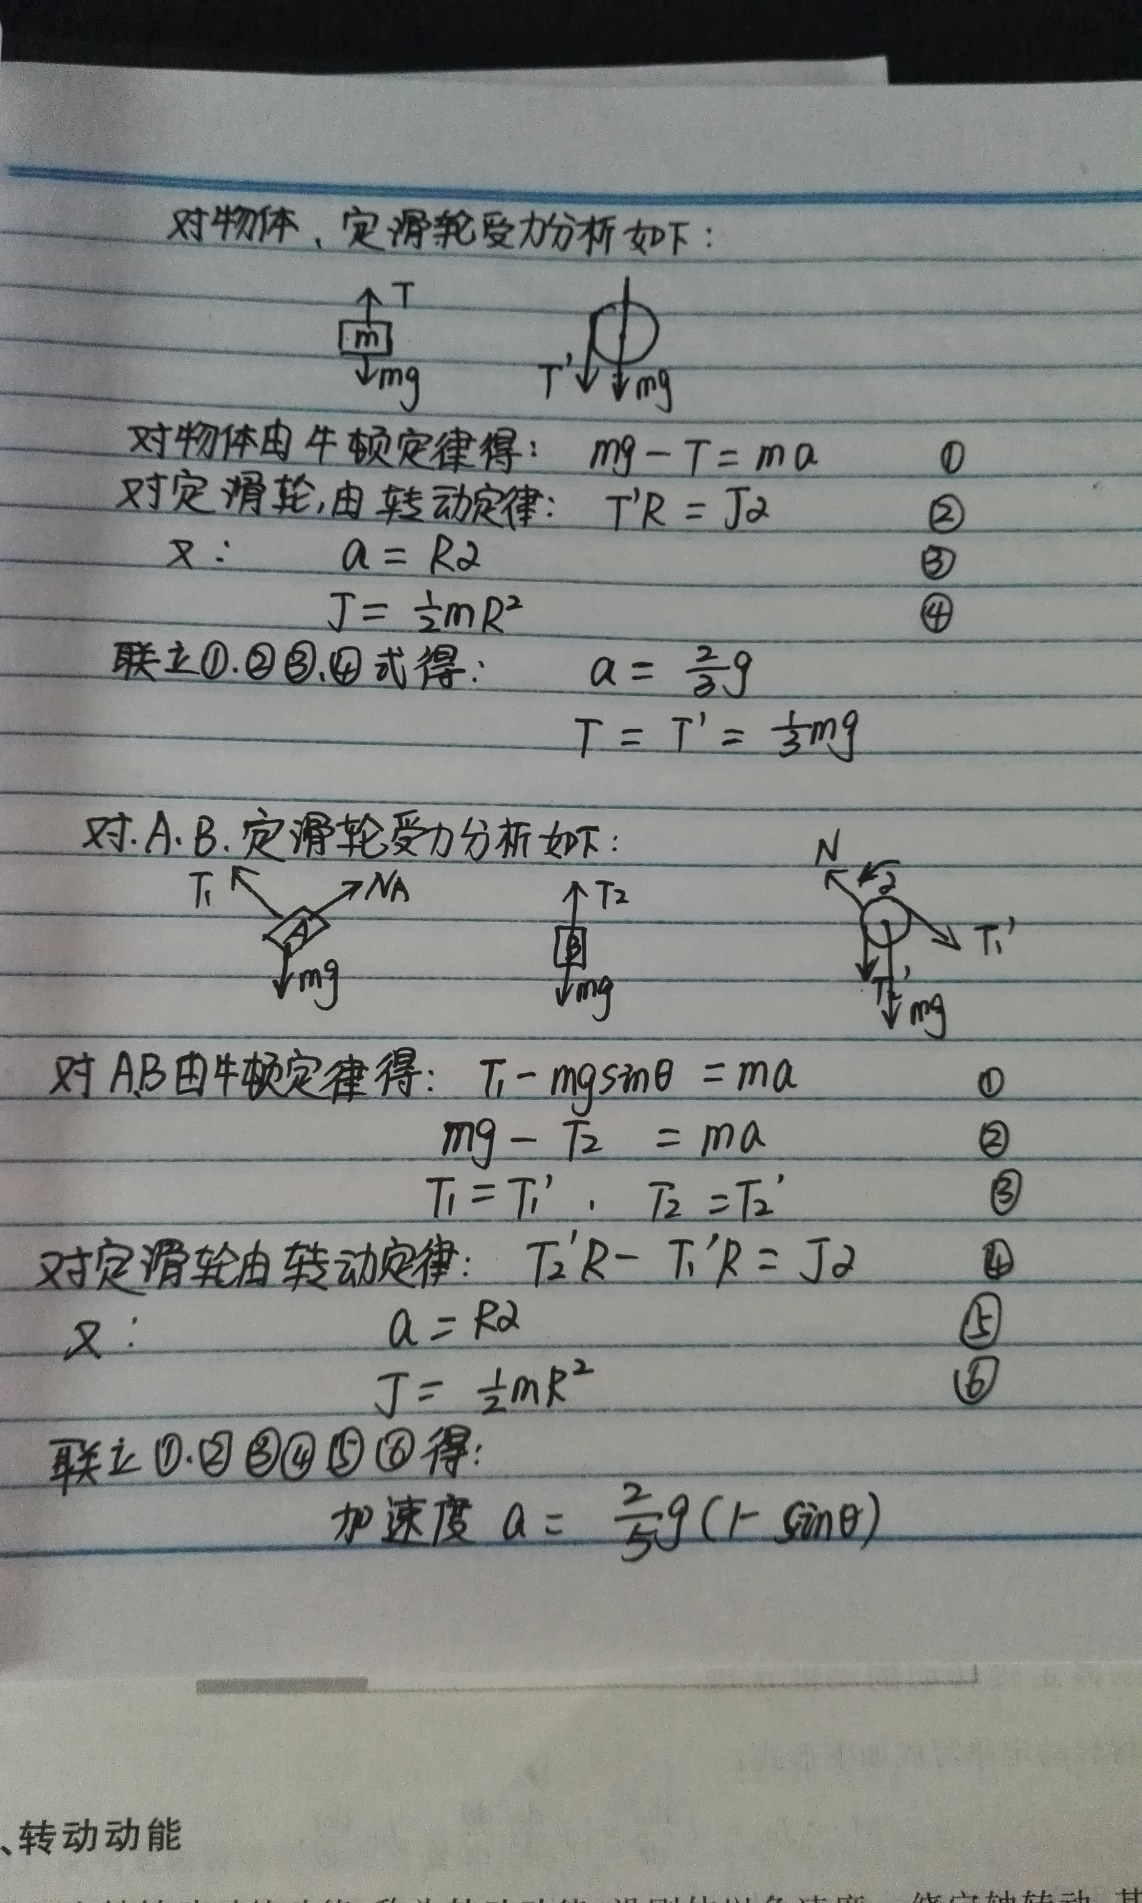 对物体、定滑轮受力分析如下:
T
m
mg
T' mg
对物体由牛顿定律得: mg - T = ma ①
对定滑轮,由转动定律: T'R = Jα ②
又: a = Rα ③
J = ½mR² ④
联立①.②③.④式得: a = 2/3 g
T = T' = 1/3 mg
对.A.B.定滑轮受力分析如下:
T₁ NA
A
mg
T2
B
mg
N α
T₁'
T₂'
mg
对A.B由牛顿定律得: T₁ - mgsinθ = ma ①
mg - T₂ = ma ②
T₁ = T₁' . T₂ = T₂' ③
对定滑轮由转动定律: T₂'R - T₁'R = Jα ④
又: a = Rα ⑤
J = ½mR² ⑥
联立①.②③④⑤⑥得:
加速度 a = 2/5 g(1 - sinθ)
、转动动能